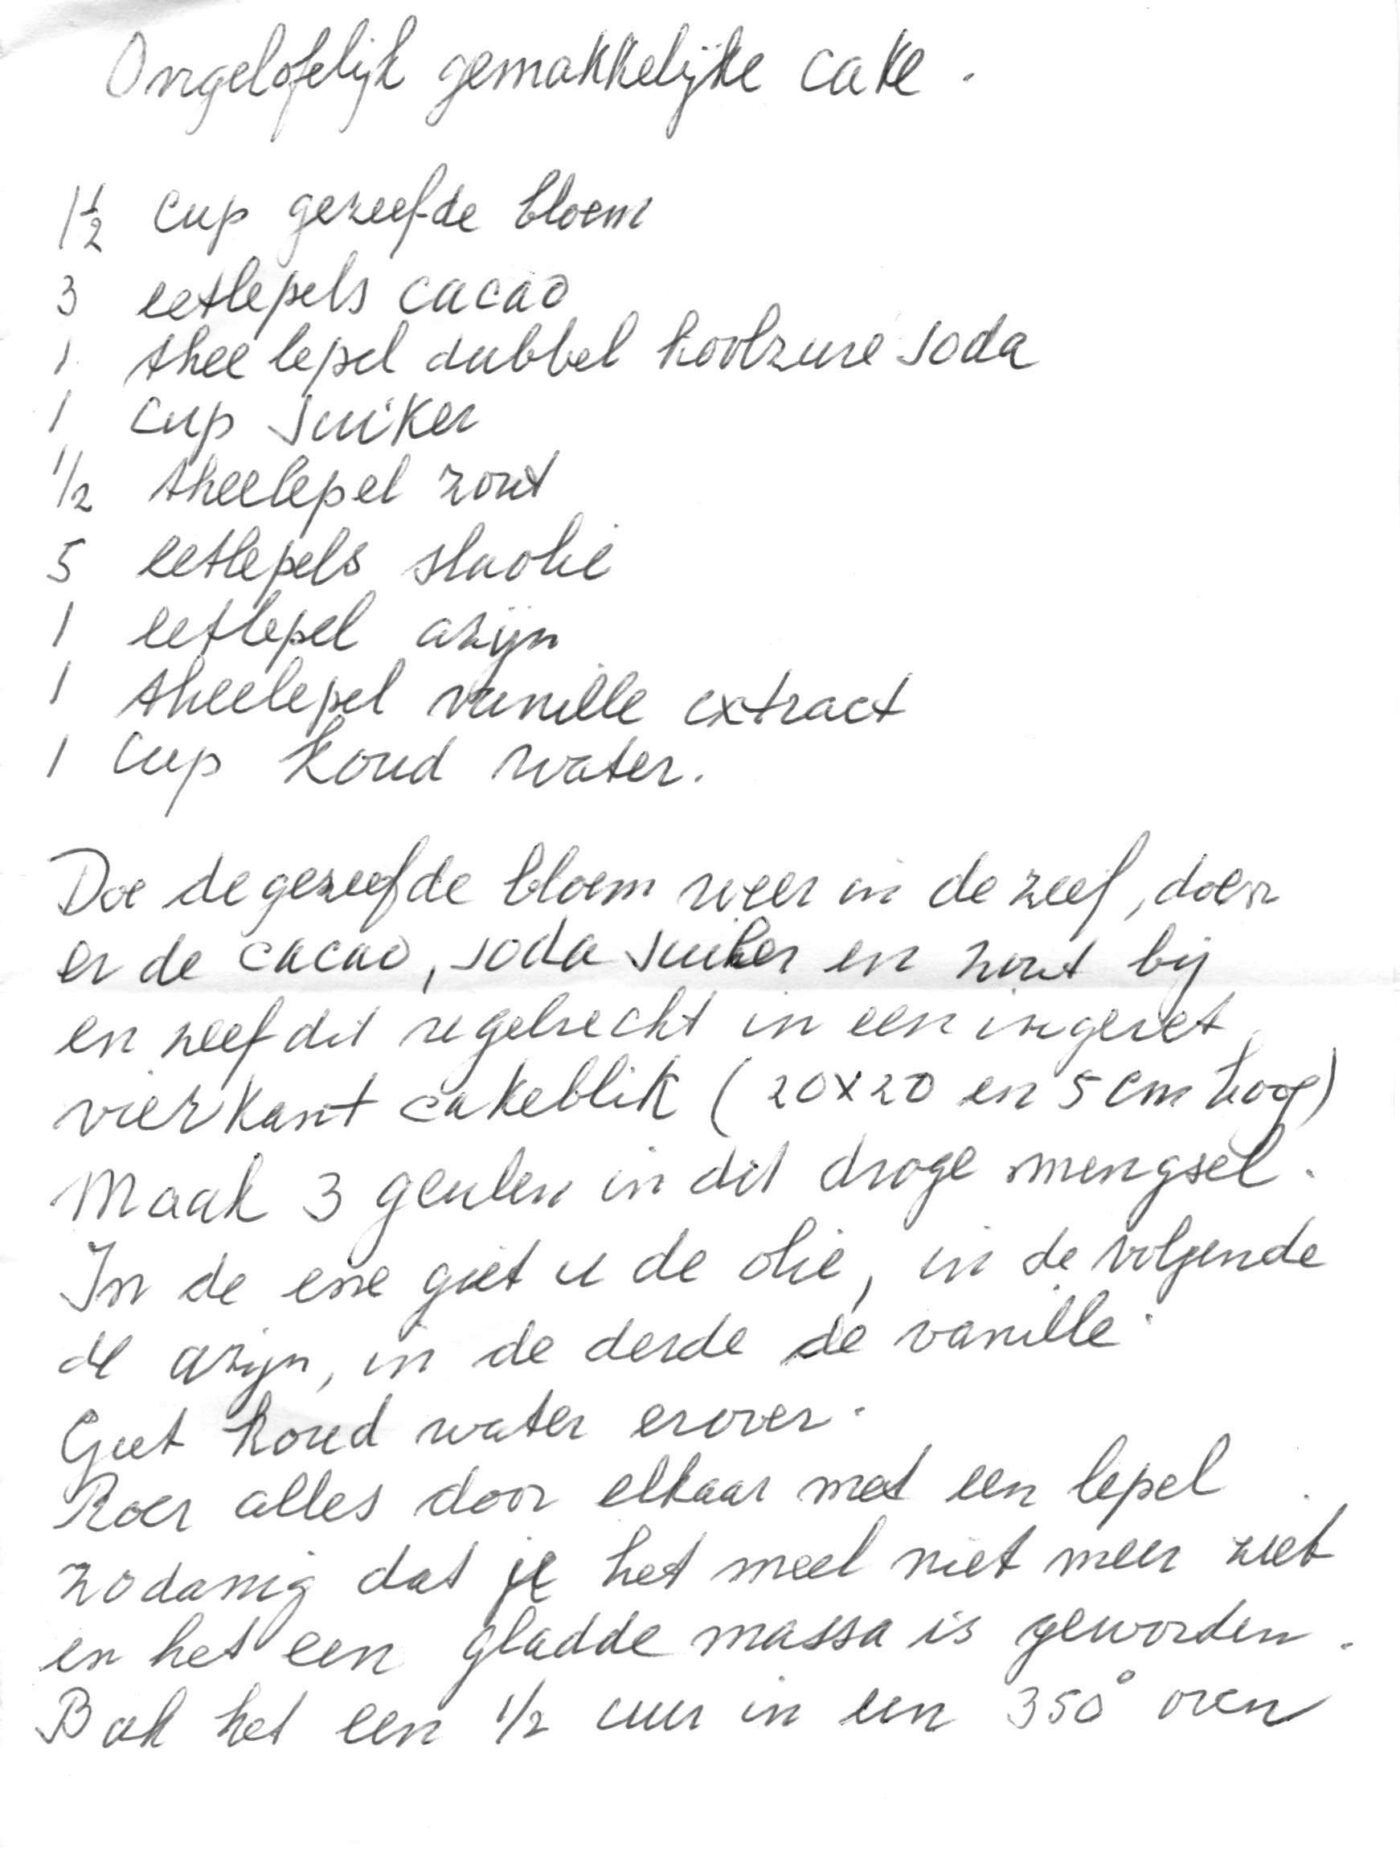 Ongelofelijk gemakkelijke cake.
1½ cup gezeefde bloem
3 eetlepels cacao
1 thee lepel dubbel koolzure soda
1 cup suiker
1/2 theelepel zout
5 eetlepels slaolie
1 eetlepel azijn
1 theelepel vanille extract
1 cup koud water.
Doe de gezeefde bloem weer in de zeef, doe
er de cacao, soda suiker en zout bij
en zeef dit regelrecht in een ingevet
vierkant cakeblik (20x20 en 5 cm hoog)
Maak 3 geulen in dit droge mengsel.
In de ene giet u de olie, in de volgende
de azijn, in de derde de vanille.
Giet koud water erover.
Roer alles door elkaar met een lepel
zodanig dat je het meel niet meer ziet
en het een gladde massa is geworden.
Bak het een 1/2 uur in een 350° oven